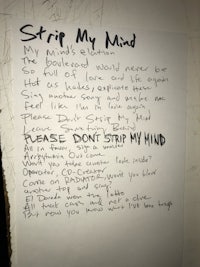 Strip My Mind
My Mind's elation
The boulevard would never be
So full of love and life again
Hot as hades, explicate these
Sing another song and make me
feel like I'm in love again
Please Don't Strip My Mind
Leave Something Behind
PLEASE DON'T STRIP MY MIND
All in favor sign a waiver
Aerophonic Outcome
Won't you take another look inside?
Operator, CO-Creator
Come on RADIATOR won't you blow
another top and sing?
El Dorado won the lotto
All trash cash and not a clue
But now you know won't